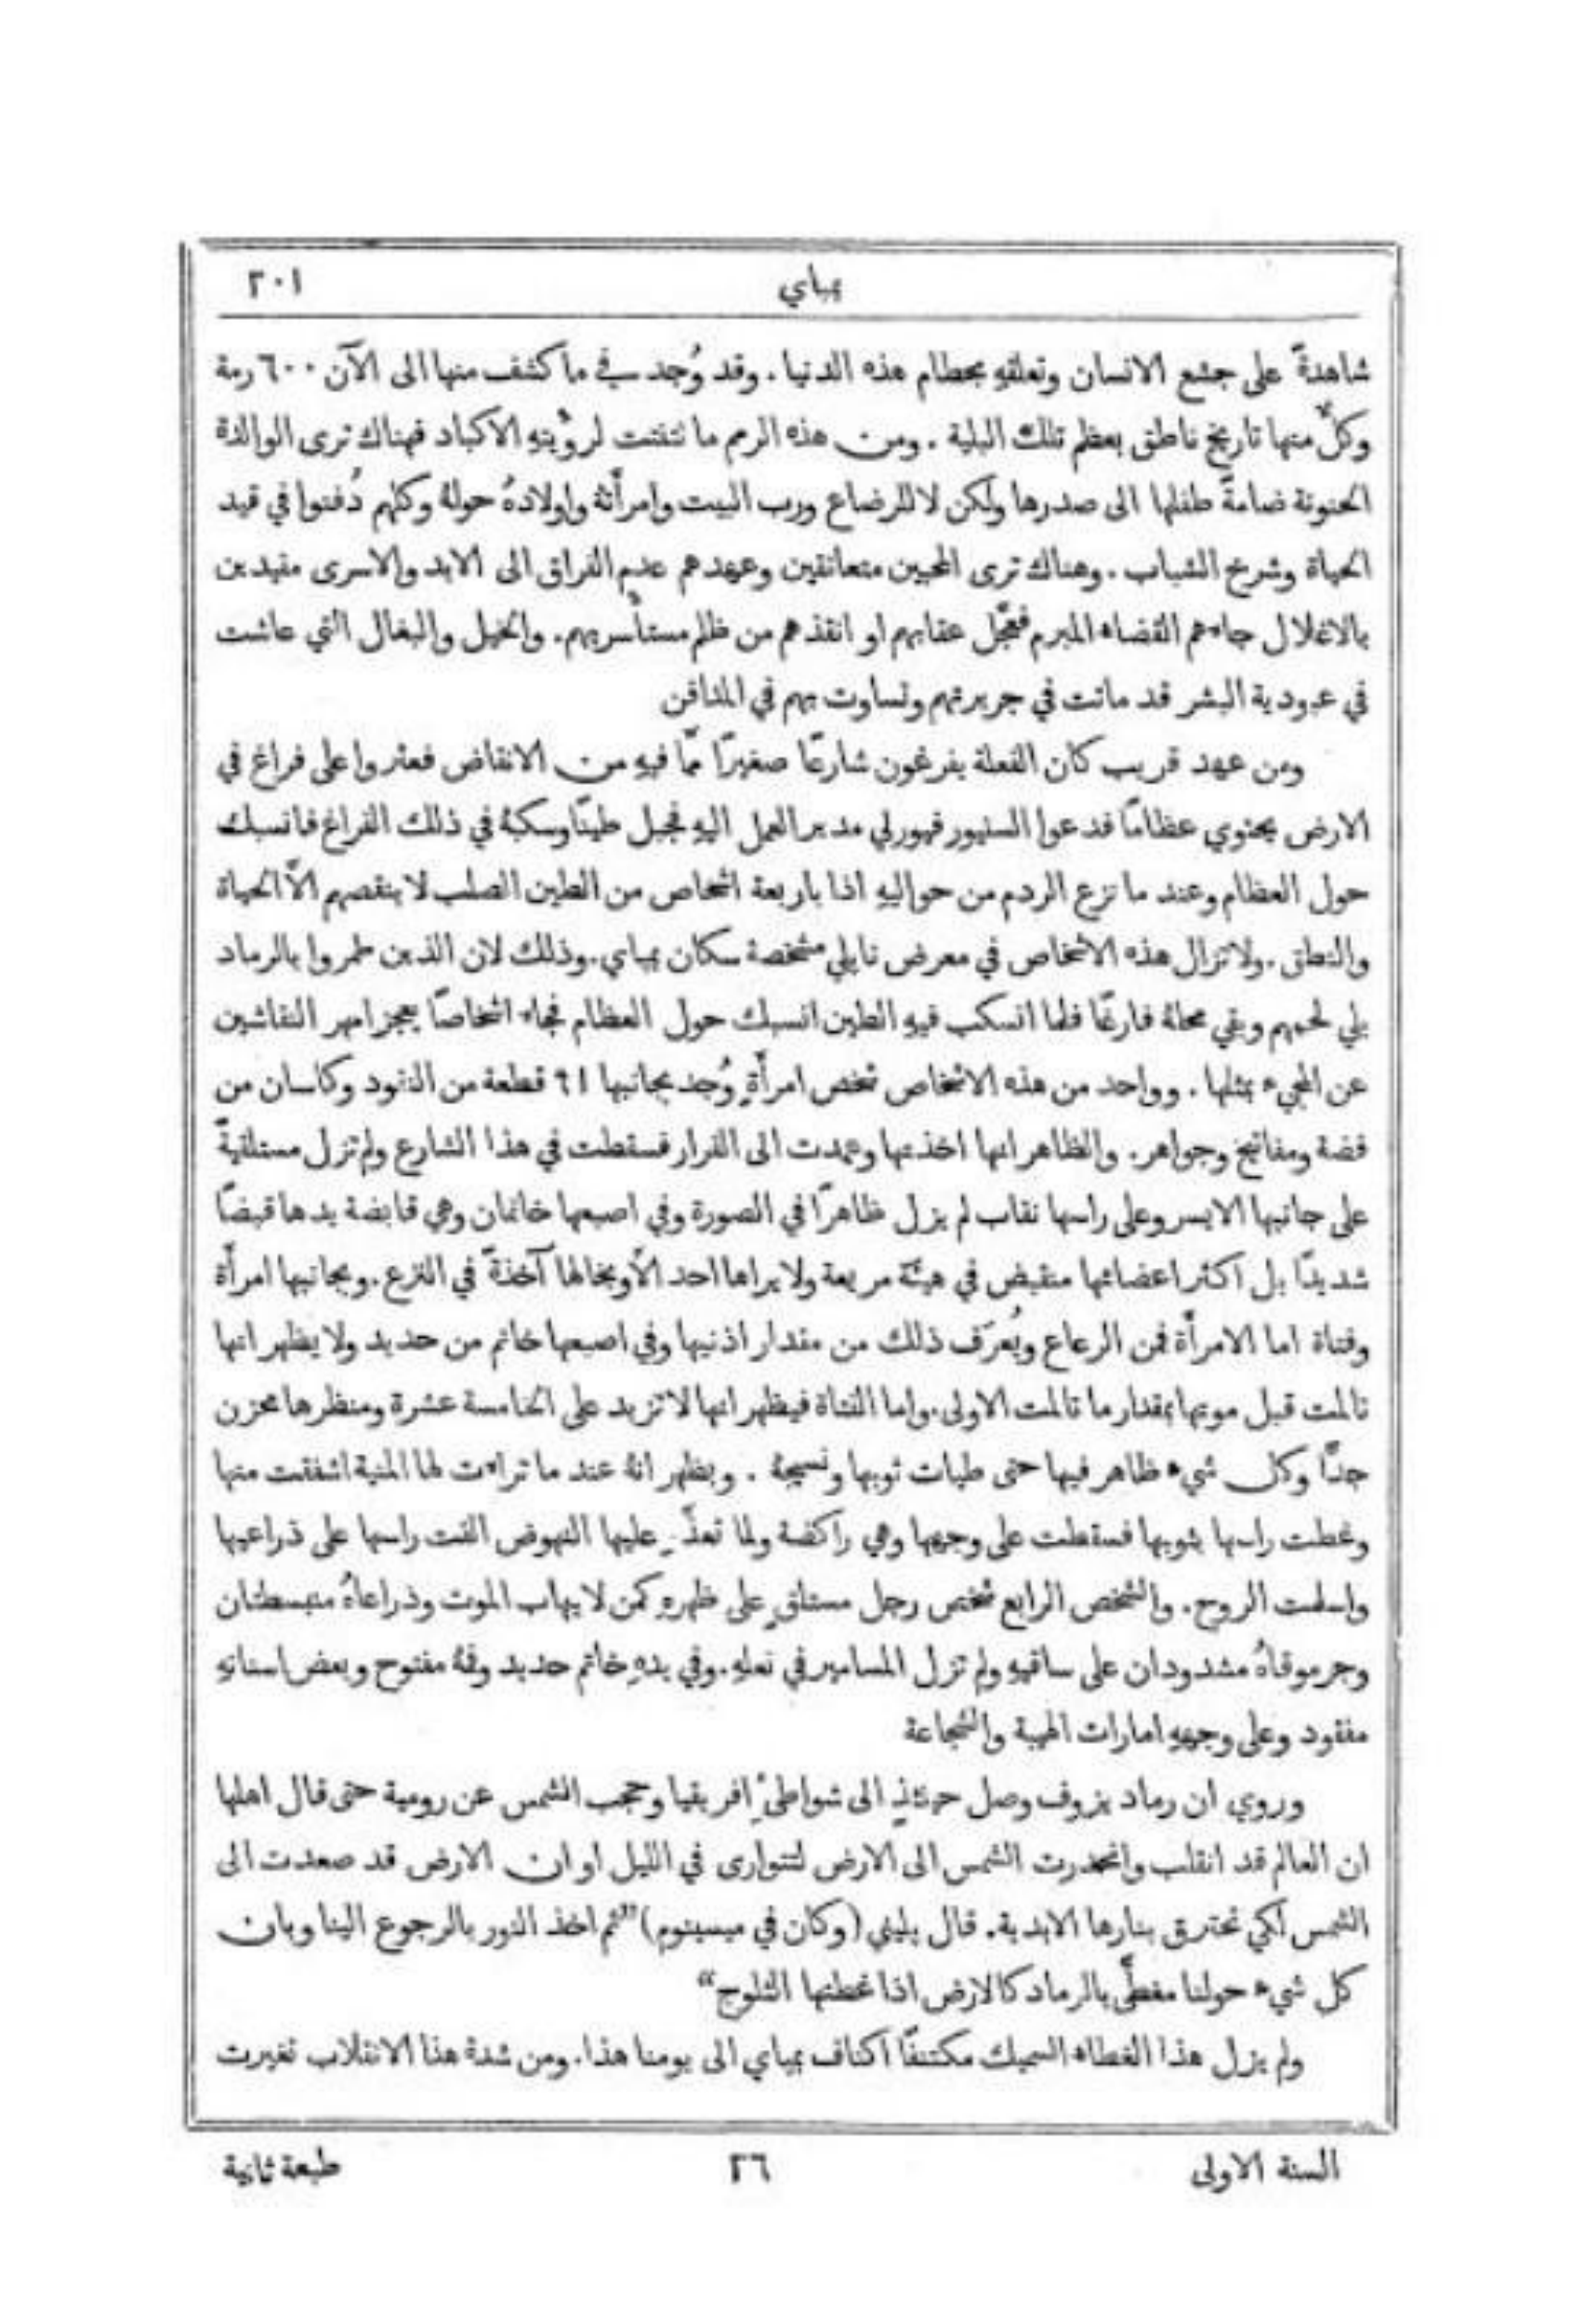 بمباي
٢٠١
شاهدةً على جشع الانسان وتعلقهِ بحطام هذه الدنيا. وقد وُجد في ما كشف منها الى الآن ٦٠٠ رمة
وكلٌّ منها تاريخ ناطق بعظم تلك البلية. ومن هذه الرمم ما تتفتت لرؤيتهِ الاكباد فهناك ترى الوالدة
الحنونة ضامةً طفلها الى صدرها ولكن لا للرضاع ورب البيت وامرأتهُ واولادهُ حولهُ وكلهم دُفنوا في قيد
الحياة وشرخ الشباب. وهناك ترى المحبين متعانقين وعهدهم عدم الفراق الى الابد والاسرى مقيدين
بالاغلال جاءهم القضاء المبرم فعجَّل عقابهم او انقذهم من ظلم مستأسريهم. والخيل والبغال التي عاشت
في عبودية البشر قد ماتت في جريرتهم وتساوت بهم في المدافن
ومن عهد قريب كان الفعلة يفرغون شارعًا صغيرًا ممَّا فيهِ من الانقاض فعثروا على فراغ في
الارض يحتوي عظامًا فدعوا السنيور فيورلي مدير العمل اليهِ فجبل طينًا وسكبهُ في ذلك الفراغ فانسبك
حول العظام وعند ما نزع الردم من حواليهِ اذا باربعة اشخاص من الطين الصلب لا ينقصهم الَّا الحياة
والنطق. ولا تزال هذه الاشخاص في معرض نابلي مشخصة سكان بمباي. وذلك لان الذين طمروا بالرماد
بلي لحمهم وبقي محلهُ فارغًا فلما انسكب فيهِ الطين انسبك حول العظام فجاء اشخاصًا يعجز امهر النقاشين
عن المجيء بمثلها. وواحد من هذه الاشخاص شخص امرأةٍ وُجد بجانبها ٩١ قطعة من النقود وكاسان من
فضة ومفاتيح وجواهر. والظاهر انها اخذتها وعمدت الى الفرار فسقطت في هذا الشارع ولم تزل مستلقيةً
على جانبها الايسر وعلى راسها نقاب لم يزل ظاهرًا في الصورة وفي اصبعها خاتمان وهي قابضة يدها قبضًا
شديدًا بل اكثر اعضائها منقبض في هيئة مريعة ولا يراها احد الَّا ويخالها آخذةً في النزع. وبجانبها امرأة
وفتاة اما الامرأة فمن الرعاع ويُعرَف ذلك من مقدار اذنيها وفي اصبعها خاتم من حديد ولا يظهر انها
تالمت قبل موتها بمقدار ما تالمت الاولى. واما الفتاة فيظهر انها لا تزيد على الخامسة عشرة ومنظرها محزن
جدًّا وكل شيء ظاهر فيها حتى طيات ثوبها ونسيجهُ. ويظهر انهُ عند ما تراءت لها المنية اشفقت منها
وغطت راسها بثوبها فسقطت على وجهها وهي راكضة ولما تعذَّر عليها النهوض القت راسها على ذراعيها
واسلمت الروح. والشخص الرابع شخص رجل مستلقٍ على ظهرهِ كمن لا يهاب الموت وذراعاهُ منبسطتان
وجرموقاهُ مشدودان على ساقيهِ ولم تزل المسامير في نعلهِ. وفي يدهِ خاتم حديد وفمهُ مفتوح وبعض اسنانهِ
مفقود وعلى وجههِ امارات الهيبة والشجاعة
وروي ان رماد يزوف وصل حينئذٍ الى شواطئِ افريقيا وحجب الشمس عن رومية حتى قال اهلها
ان العالم قد انقلب وانحدرت الشمس الى الارض لتتوارى في الليل او ان الارض قد صعدت الى
الشمس لكي تحترق بنارها الابدية. قال بليني (وكان في ميسينوم) "ثم اخذ النور بالرجوع الينا وبان
كل شيء حولنا مغطًّى بالرماد كالارض اذا غطتها الثلوج"
ولم يزل هذا الغطاء السميك مكتنفًا اكناف بمباي الى يومنا هذا. ومن شدة هذا الانقلاب تغيرت
السنة الاولى
٢٦
طبعة ثانية